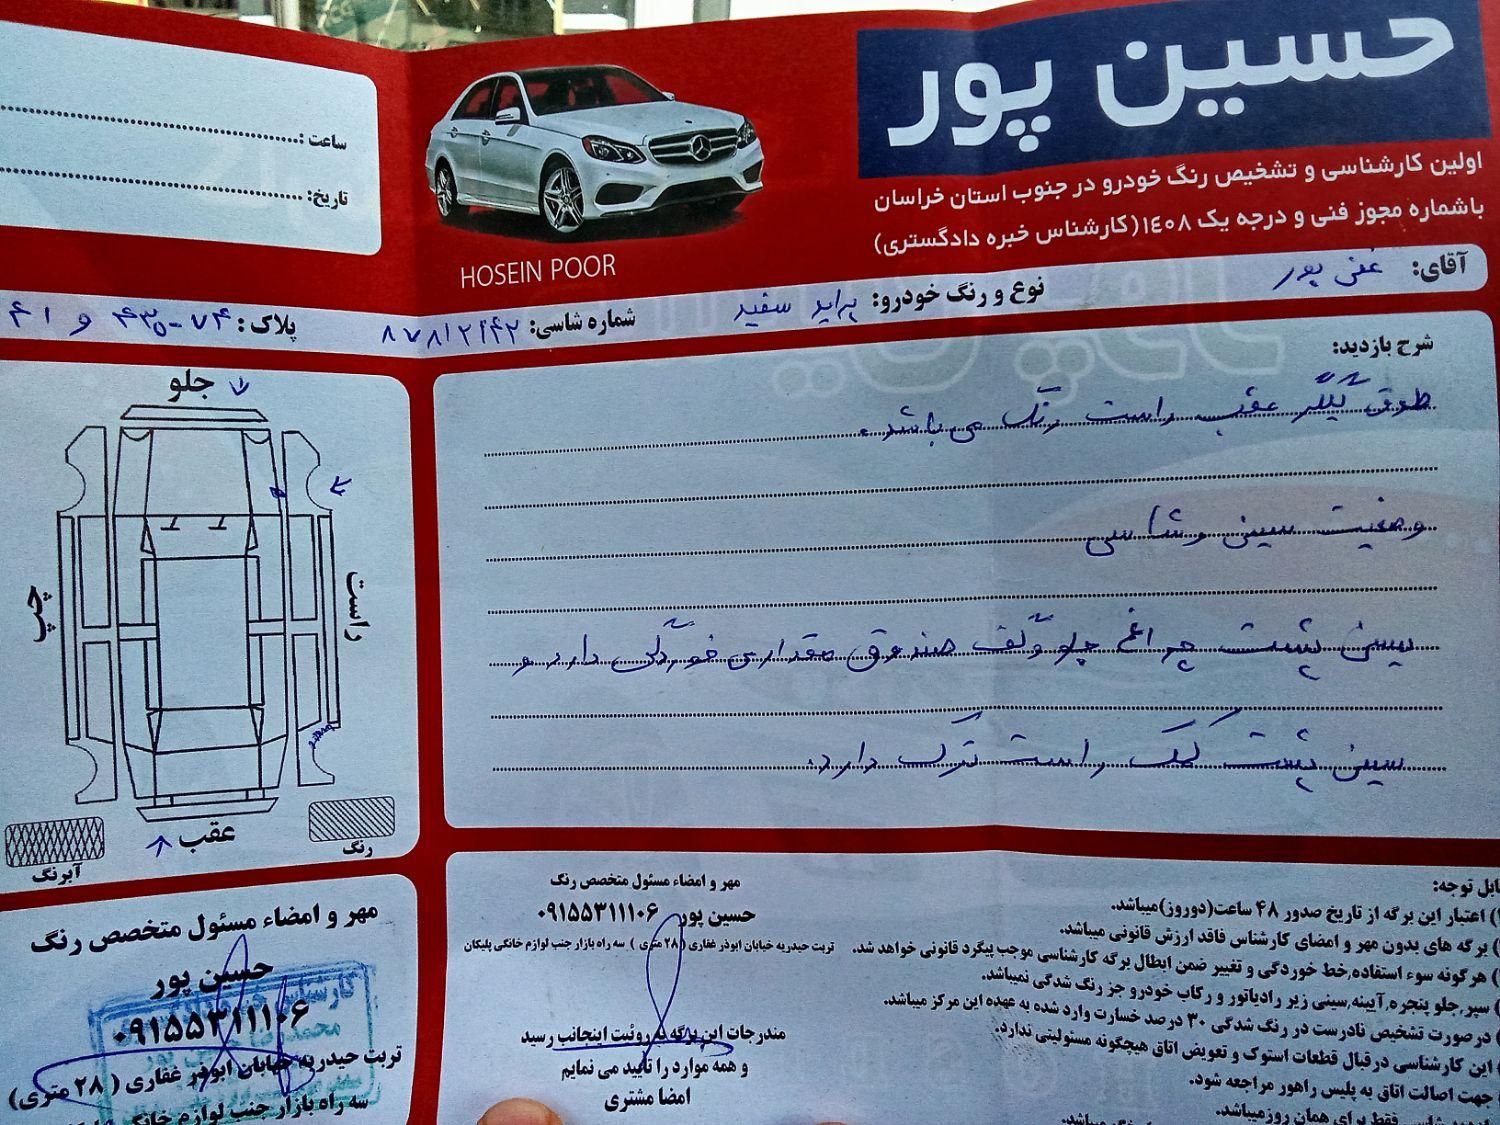 حسین پور
اولین کارشناسی و تشخیص رنگ خودرو در جنوب استان خراسان
باشماره مجوز فنی و درجه یک ۱۴۰۸ (کارشناس خبره دادگستری)
HOSEIN POOR
ساعت :
تاریخ:
آقای: غنی پور
نوع و رنگ خودرو: پراید سفید
شماره شاسی: ۸۷۸۱۲۱۴۲
پلاک: ۷۴-۴۳۵ و ۴۱
شرح بازدید:
طوق گلگر عقب راست رنگ می باشد.
وضعیت سینی و شاسی
سینی پشت چراغ جلو و کف صندوق مقداری خوردگی دارد و
سینی پشت کمک راست ترک دارد.
جلو
چپ
راست
عقب
رنگ
آبرنگ
مهر و امضاء مسئول متخصص رنگ
حسین پور
۰۹۱۵۵۳۱۱۱۰۶
تربت حیدریه خیابان ابوذر غفاری ( ۲۸ متری)
سه راه بازار جنب لوازم خانگی
مهر و امضاء مسئول متخصص رنگ
حسین پور ۰۹۱۵۵۳۱۱۱۰۶
تربت حیدریه خیابان ابوذر غفاری ( ۲۸ متری ) سه راه بازار جنب لوازم خانگی پلیکان
مندرجات این برگه به روئیت اینجانب رسید
و همه موارد را تأیید می نمایم
امضا مشتری
قابل توجه:
) اعتبار این برگه از تاریخ صدور ۴۸ ساعت(دوروز)میباشد.
) برگه های بدون مهر و امضای کارشناس فاقد ارزش قانونی میباشد.
) هرگونه سوء استفاده,خط خوردگی و تغییر ضمن ابطال برگه کارشناسی موجب پیگرد قانونی خواهد شد.
) سپر,جلو پنجره,آیینه,سینی زیر رادیاتور و رکاب خودرو جز رنگ شدگی نمیباشد.
) درصورت تشخیص نادرست در رنگ شدگی ۳۰ درصد خسارت وارد شده به عهده این مرکز میباشد.
) این کارشناسی درقبال قطعات استوک و تعویض اتاق هیچگونه مسئولیتی ندارد.
جهت اصالت اتاق به پلیس راهور مراجعه شود.
شاسی فقط برای همان روزمیباشد.